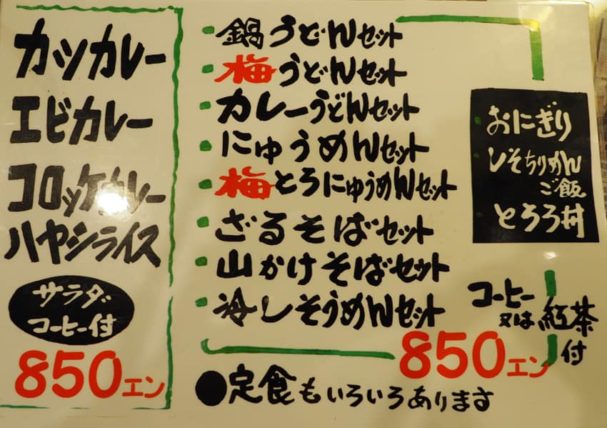 カツカレー
エビカレー
コロッケカレー
ハヤシライス
サラダ
コーヒー付
850エン
鍋うどんセット
梅うどんセット
カレーうどんセット
にゅうめんセット
梅とろにゅうめんセット
ざるそばセット
山かけそばセット
冷しそうめんセット
おにぎり
しそちりめん
ご飯
とろろ付
コーヒー
又は紅茶
付
850エン
●定食もいろいろあります